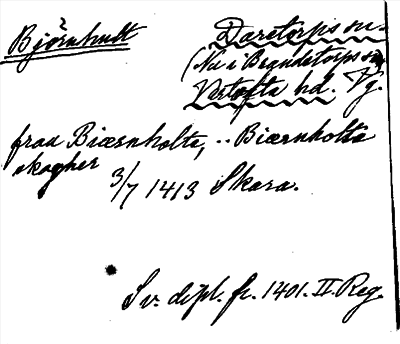 Björnhult
Daretorps sn.
(Nu i Brandstorps sn)
Vartofta hd. Vg.
fraa Biærnholta, .. Biærnholta
skogher
3/7 1413 Skara.
Sv. dipl. fr. 1401. II. Reg.